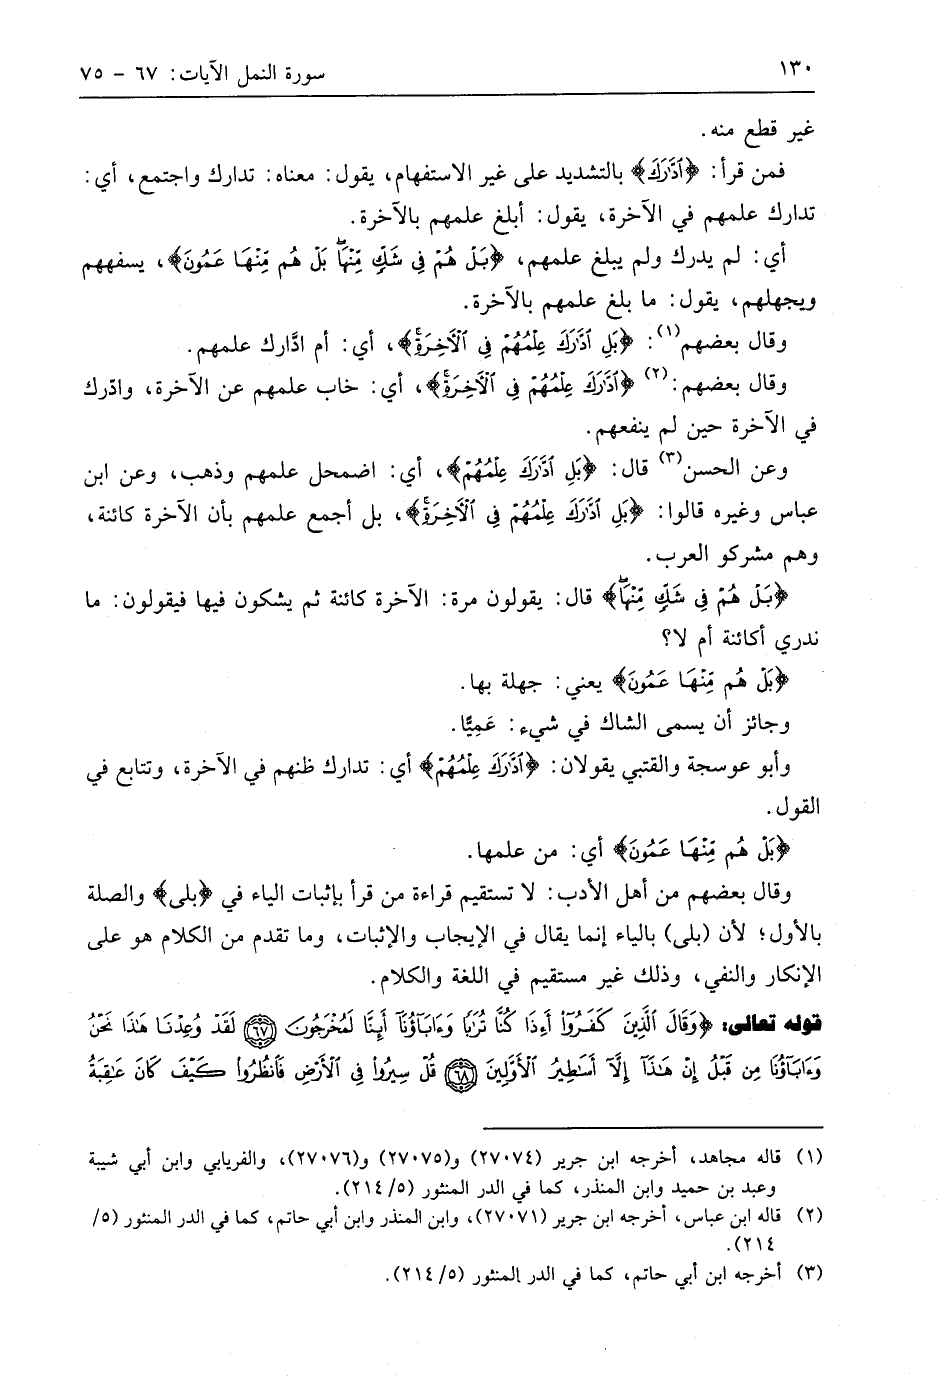 ١٣٠ سورة النمل الآيات: ٦٧ - ٧٥
غير قطع منه.
فمن قرأ: ﴿ٱدَّٰرَكَ﴾ بالتشديد على غير الاستفهام، يقول: معناه: تدارك واجتمع، أي:
تدارك علمهم في الآخرة، يقول: أبلغ علمهم بالآخرة.
أي: لم يدرك ولم يبلغ علمهم، ﴿بَلْ هُمْ فِى شَكٍّ مِّنْهَا ۖ بَلْ هُم مِّنْهَا عَمُونَ﴾، يسفههم
ويجهلهم، يقول: ما بلغ علمهم بالآخرة.
وقال بعضهم(١): ﴿بَلِ ٱدَّٰرَكَ عِلْمُهُمْ فِى ٱلْأَخِرَةِ ۚ﴾، أي: أم ادَّارك علمهم.
وقال بعضهم:(٢) ﴿ٱدَّٰرَكَ عِلْمُهُمْ فِى ٱلْأَخِرَةِ ۚ﴾، أي: خاب علمهم عن الآخرة، وادّرك
في الآخرة حين لم ينفعهم.
وعن الحسن(٣) قال: ﴿بَلِ ٱدَّٰرَكَ عِلْمُهُمْ﴾، أي: اضمحل علمهم وذهب، وعن ابن
عباس وغيره قالوا: ﴿بَلِ ٱدَّٰرَكَ عِلْمُهُمْ فِى ٱلْأَخِرَةِ ۚ﴾، بل أجمع علمهم بأن الآخرة كائنة،
وهم مشركو العرب.
﴿بَلْ هُمْ فِى شَكٍّ مِّنْهَا ۖ﴾ قال: يقولون مرة: الآخرة كائنة ثم يشكون فيها فيقولون: ما
ندري أكائنة أم لا؟
﴿بَلْ هُم مِّنْهَا عَمُونَ﴾ يعني: جهلة بها.
وجائز أن يسمى الشاك في شيء: عَمِيًّا.
وأبو عوسجة والقتبي يقولان: ﴿ٱدَّٰرَكَ عِلْمُهُمْ﴾ أي: تدارك ظنهم في الآخرة، وتتابع في
القول.
﴿بَلْ هُم مِّنْهَا عَمُونَ﴾ أي: من علمها.
وقال بعضهم من أهل الأدب: لا تستقيم قراءة من قرأ بإثبات الياء في ﴿بلى﴾ والصلة
بالأول؛ لأن (بلى) بالياء إنما يقال في الإيجاب والإثبات، وما تقدم من الكلام هو على
الإنكار والنفي، وذلك غير مستقيم في اللغة والكلام.
قوله تعالى: ﴿وَقَالَ ٱلَّذِينَ كَفَرُوٓا۟ أَءِذَا كُنَّا تُرَٰبًا وَءَابَآؤُنَآ أَئِنَّا لَمُخْرَجُونَ ٦٧ لَقَدْ وُعِدْنَا هَٰذَا نَحْنُ
وَءَابَآؤُنَا مِن قَبْلُ إِنْ هَٰذَآ إِلَّآ أَسَٰطِيرُ ٱلْأَوَّلِينَ ٦٨ قُلْ سِيرُوا۟ فِى ٱلْأَرْضِ فَٱنظُرُوا۟ كَيْفَ كَانَ عَٰقِبَةُ
(١) قاله مجاهد، أخرجه ابن جرير (٢٧٠٧٤) و(٢٧٠٧٥) و(٢٧٠٧٦)، والفريابي وابن أبي شيبة
وعبد بن حميد وابن المنذر، كما في الدر المنثور (٥/ ٢١٤).
(٢) قاله ابن عباس، أخرجه ابن جرير (٢٧٠٧١)، وابن المنذر وابن أبي حاتم، كما في الدر المنثور (٥/
٢١٤).
(٣) أخرجه ابن أبي حاتم، كما في الدر المنثور (٥/ ٢١٤).